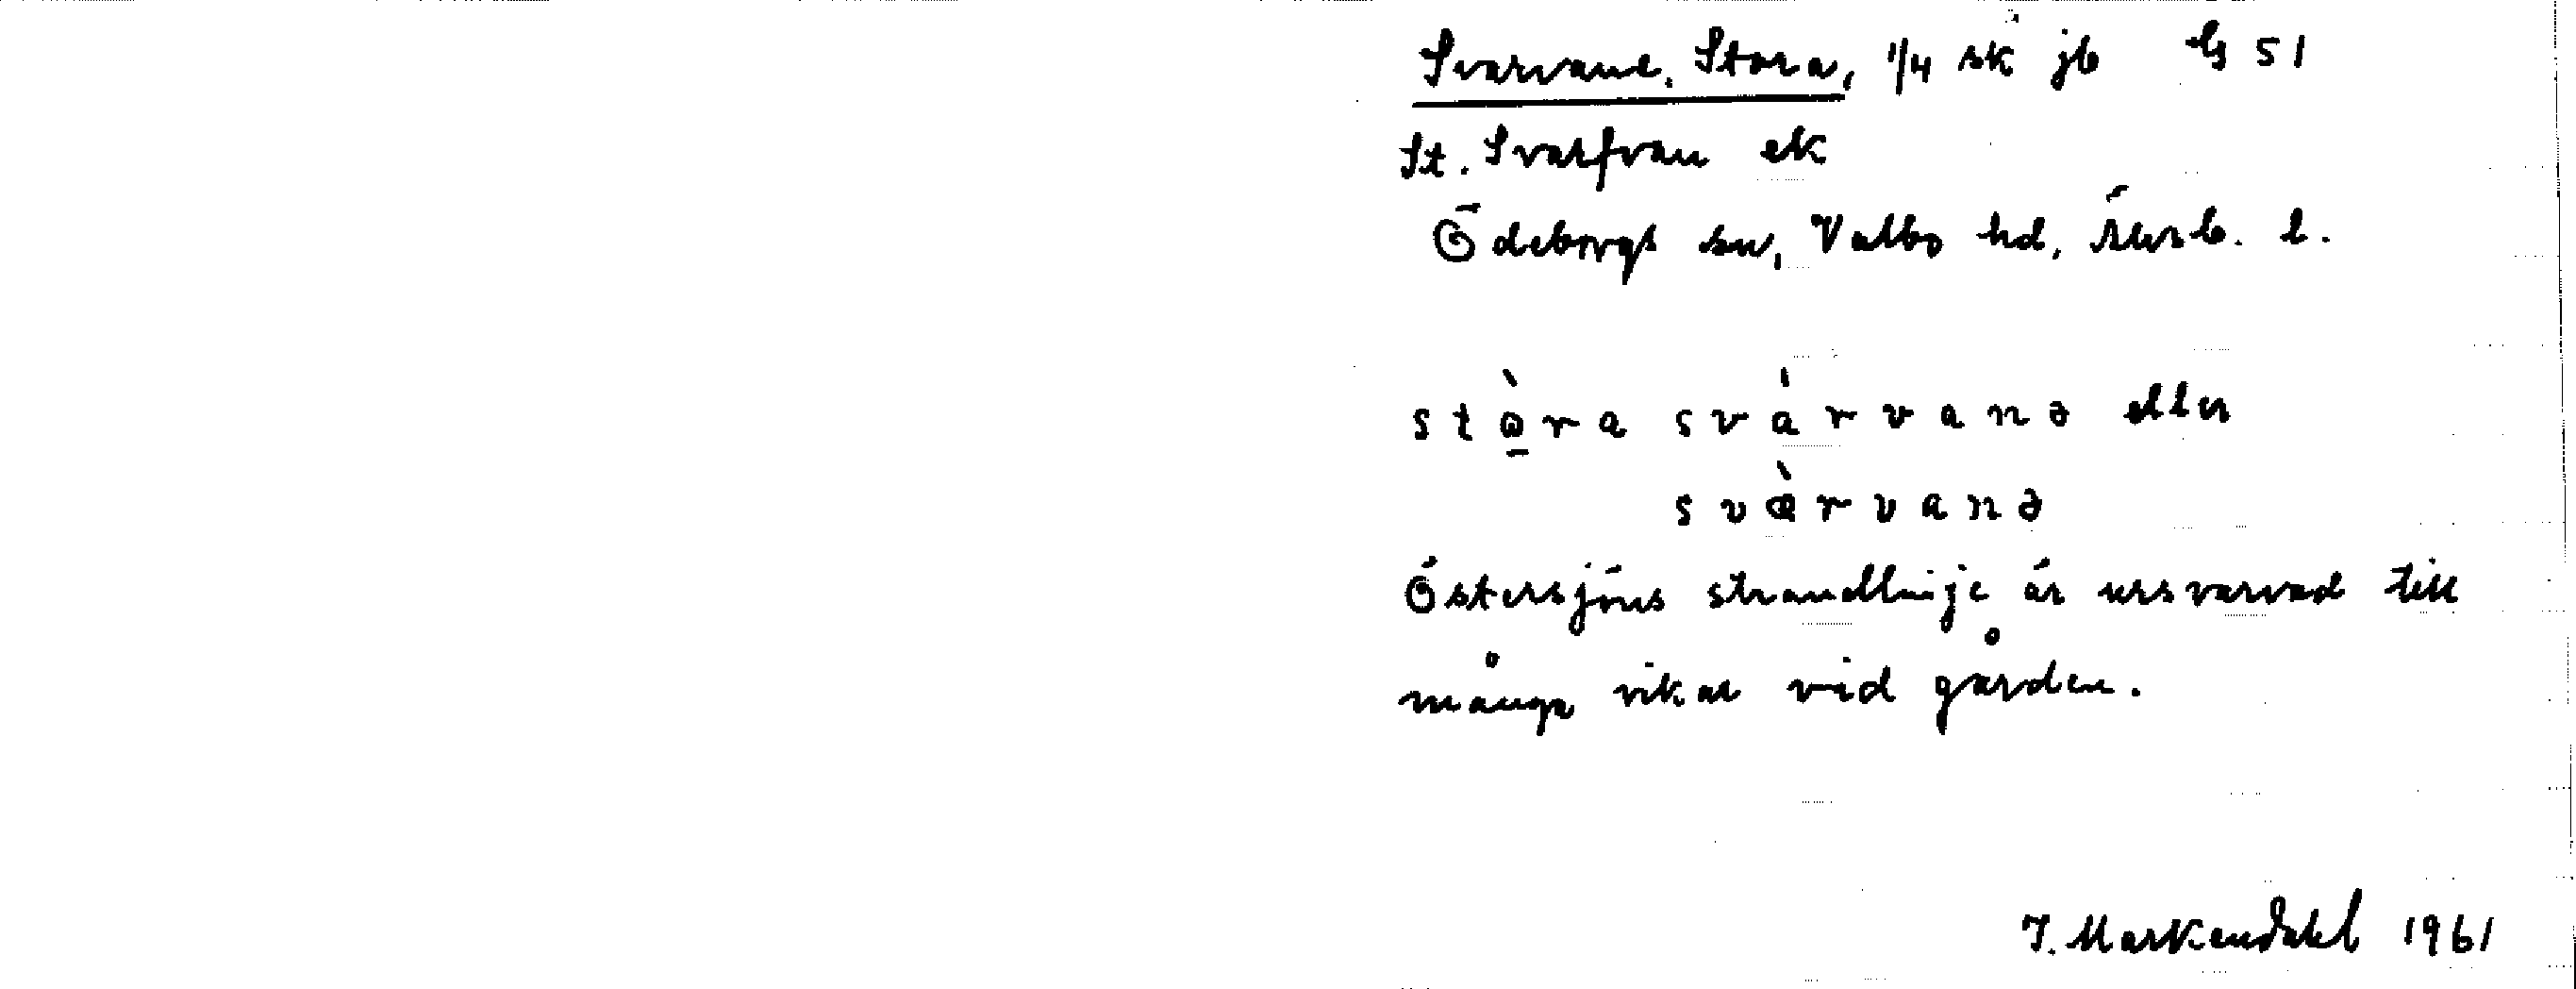 Svarvane, Stora, 1/4 sk jb G 51
St. Svarfvan ek
Ödeborgs sn, Valbo hd, Älvsb. l.
stọ̀ra svárvanə eller
svæ̀rvanə
Östersjöns strandlinje är ursvarvad till
många vikar vid gården.
I. Markendahl 1961